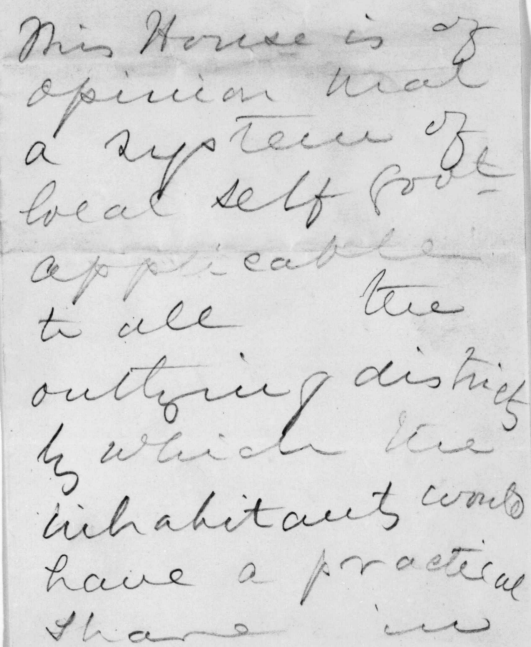 This House is of
opinion that
a system of
local self govt
applicable
to all the
outlying districts
by which the
inhabitants would
have a practical
share in